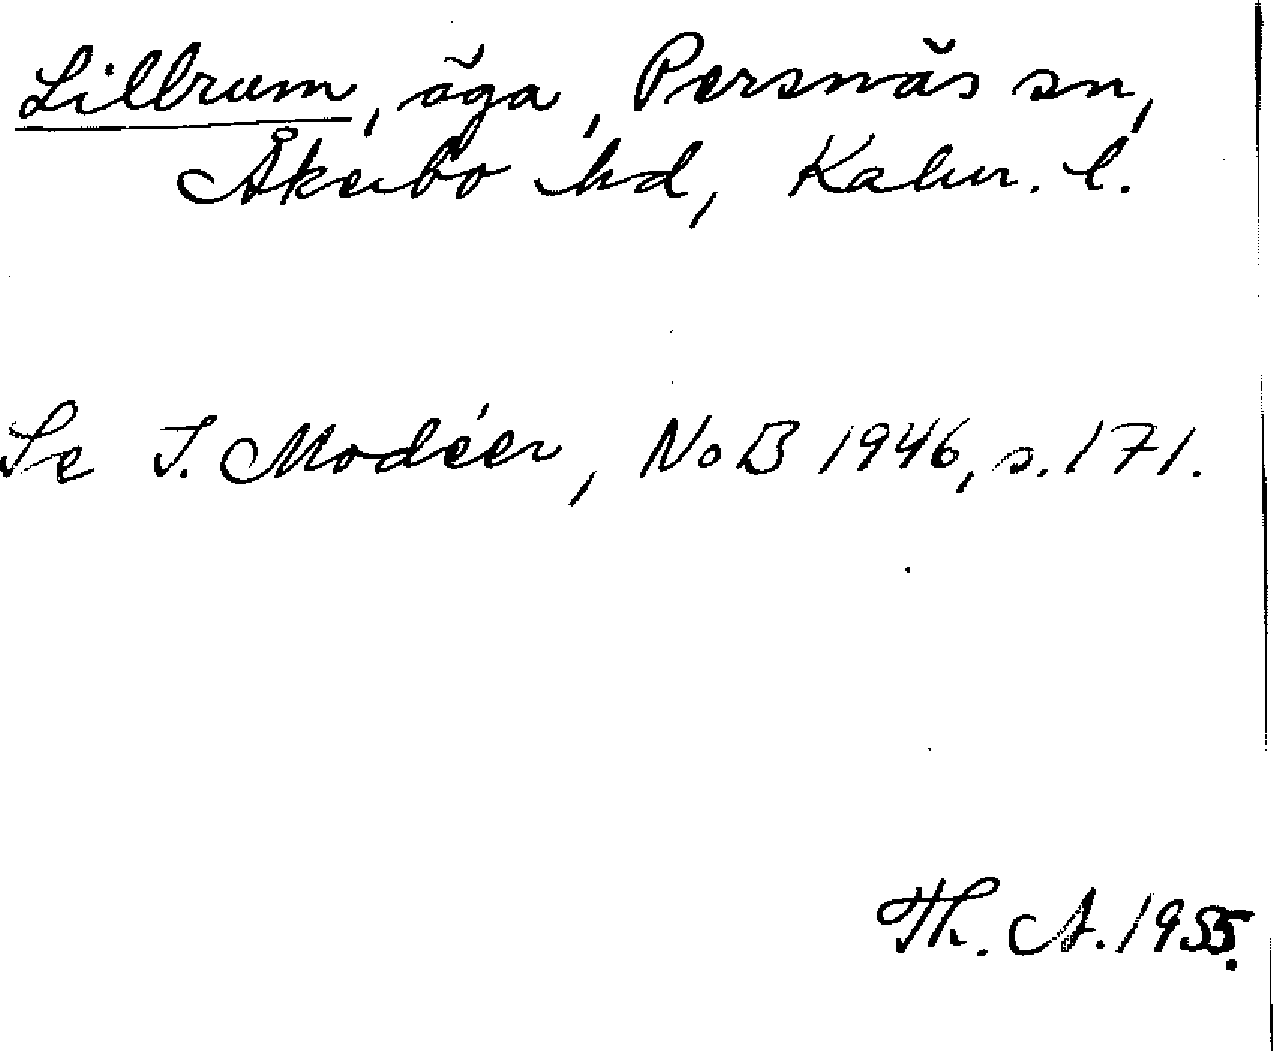 Lillrum, äga, Persnäs sn,
Åkerbo hd, Kalm. l.
Se I. Modéer, NoB 1946, s. 171.
Th. A. 1955.